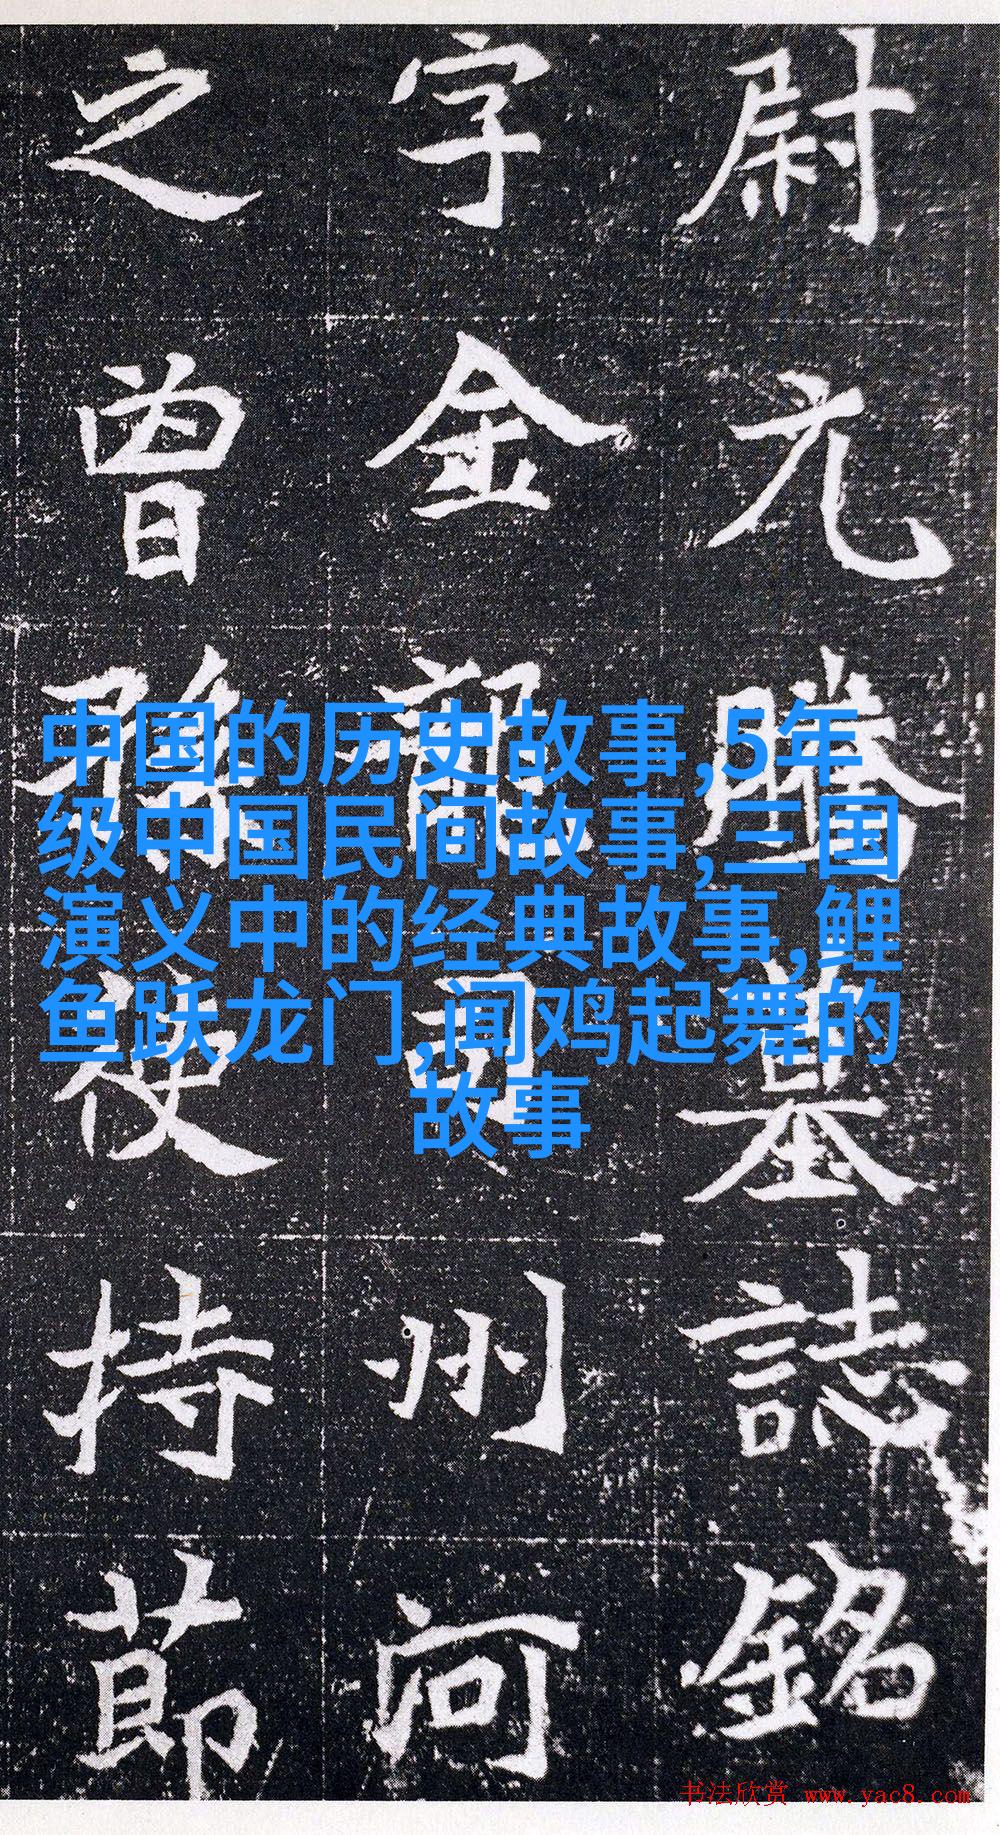 尉元騰墓誌銘
字金龍司州河
之曾孫使持節
中国的历史故事,5年
级中国民间故事,三国
演义中的经典故事,鲤
鱼跃龙门,闻鸡起舞的
故事
书法欣赏 www.yac8.com